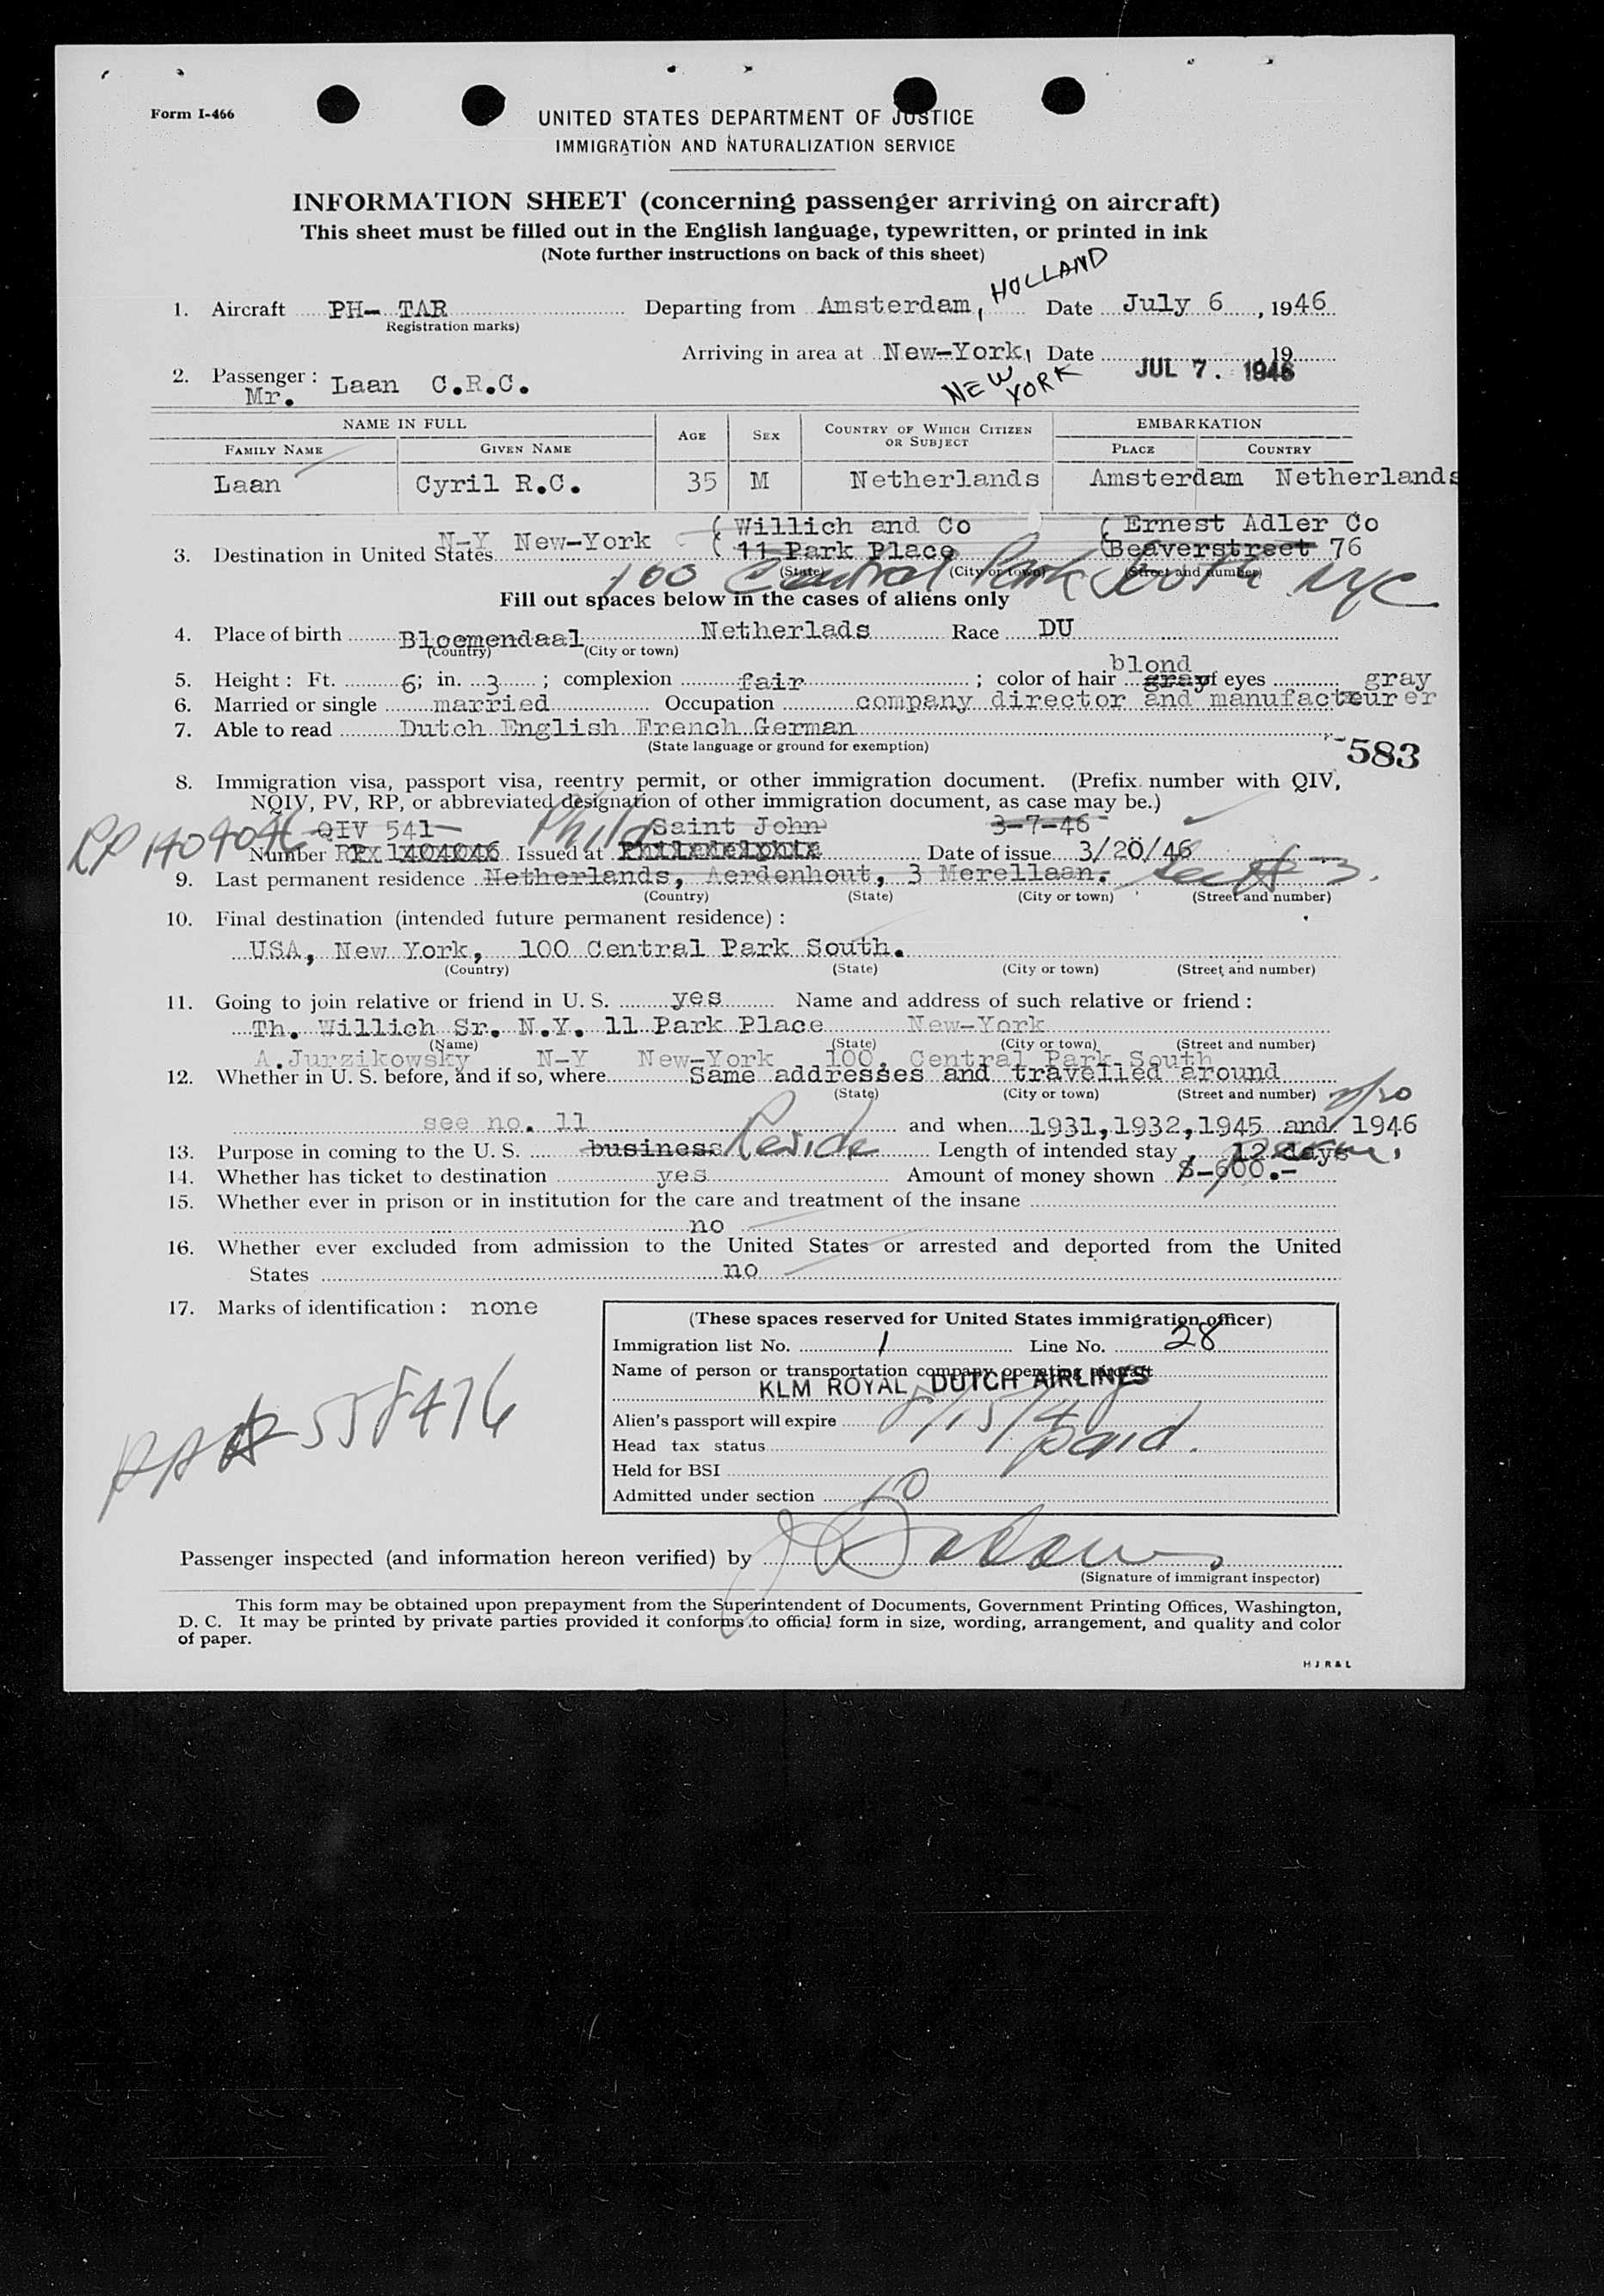 Form I-466
UNITED STATES DEPARTMENT OF JUSTICE
IMMIGRATION AND NATURALIZATION SERVICE
INFORMATION SHEET (concerning passenger arriving on aircraft)
This sheet must be filled out in the English language, typewritten, or printed in ink
(Note further instructions on back of this sheet)
1. Aircraft PH- TAR Departing from Amsterdam, HOLLAND Date July 6, 1946
Registration marks)
Arriving in area at New-York, NEW YORK Date 19
JUL 7. 1946
2. Passenger: Mr. Laan C.R.C.
NAME IN FULL AGE SEX COUNTRY OF WHICH CITIZEN OR SUBJECT EMBARKATION
FAMILY NAME GIVEN NAME PLACE COUNTRY
Laan Cyril R.C. 35 M Netherlands Amsterdam Netherlands
( Willich and Co ( Ernest Adler Co
3. Destination in United States N-Y New-York ( 11 Park Place (Beaverstreet 76
(State) (City or town) (Street and number)
100 Central Park South NYC
Fill out spaces below in the cases of aliens only
4. Place of birth Bloemendaal Netherlads Race DU
(Country) (City or town)
5. Height: Ft. 6; in. 3; complexion fair; color of hair blond gray of eyes gray
6. Married or single married Occupation company director and manufacteurer
7. Able to read Dutch English French German
(State language or ground for exemption)
583
8. Immigration visa, passport visa, reentry permit, or other immigration document. (Prefix number with QIV,
NQIV, PV, RP, or abbreviated designation of other immigration document, as case may be.)
RP 1404046 QIV 541 Phila Saint John 3-7-46
Number RP 1404046 Issued at Philadelphia Date of issue 3/20/46
9. Last permanent residence Netherlands, Aerdenhout, 3 Merellaan. see # 3.
(Country) (State) (City or town) (Street and number)
10. Final destination (intended future permanent residence):
USA, New York, 100 Central Park South.
(Country) (State) (City or town) (Street and number)
11. Going to join relative or friend in U. S. yes Name and address of such relative or friend:
Th. Willich Sr. N.Y. 11 Park Place New-York
(Name) (State) (City or town) (Street and number)
A.Jurzikowsky N-Y New-York 100, Central Park South
12. Whether in U. S. before, and if so, where Same addresses and travelled around
(State) (City or town) (Street and number)
see no. 11 and when 1931,1932,1945 and 1946
13. Purpose in coming to the U. S. business Reside Length of intended stay 12 days perm.
14. Whether has ticket to destination yes Amount of money shown $-600.-
15. Whether ever in prison or in institution for the care and treatment of the insane
no
16. Whether ever excluded from admission to the United States or arrested and deported from the United
States no
17. Marks of identification: none
(These spaces reserved for United States immigration officer)
Immigration list No. 1 Line No. 28
Name of person or transportation company operating aircraft
KLM ROYAL DUTCH AIRLINES
Alien's passport will expire 8/15/48
Head tax status paid.
Held for BSI
Admitted under section 10
558476
Passenger inspected (and information hereon verified) by
(Signature of immigrant inspector)
This form may be obtained upon prepayment from the Superintendent of Documents, Government Printing Offices, Washington,
D. C. It may be printed by private parties provided it conforms to official form in size, wording, arrangement, and quality and color
of paper.
H J R & L